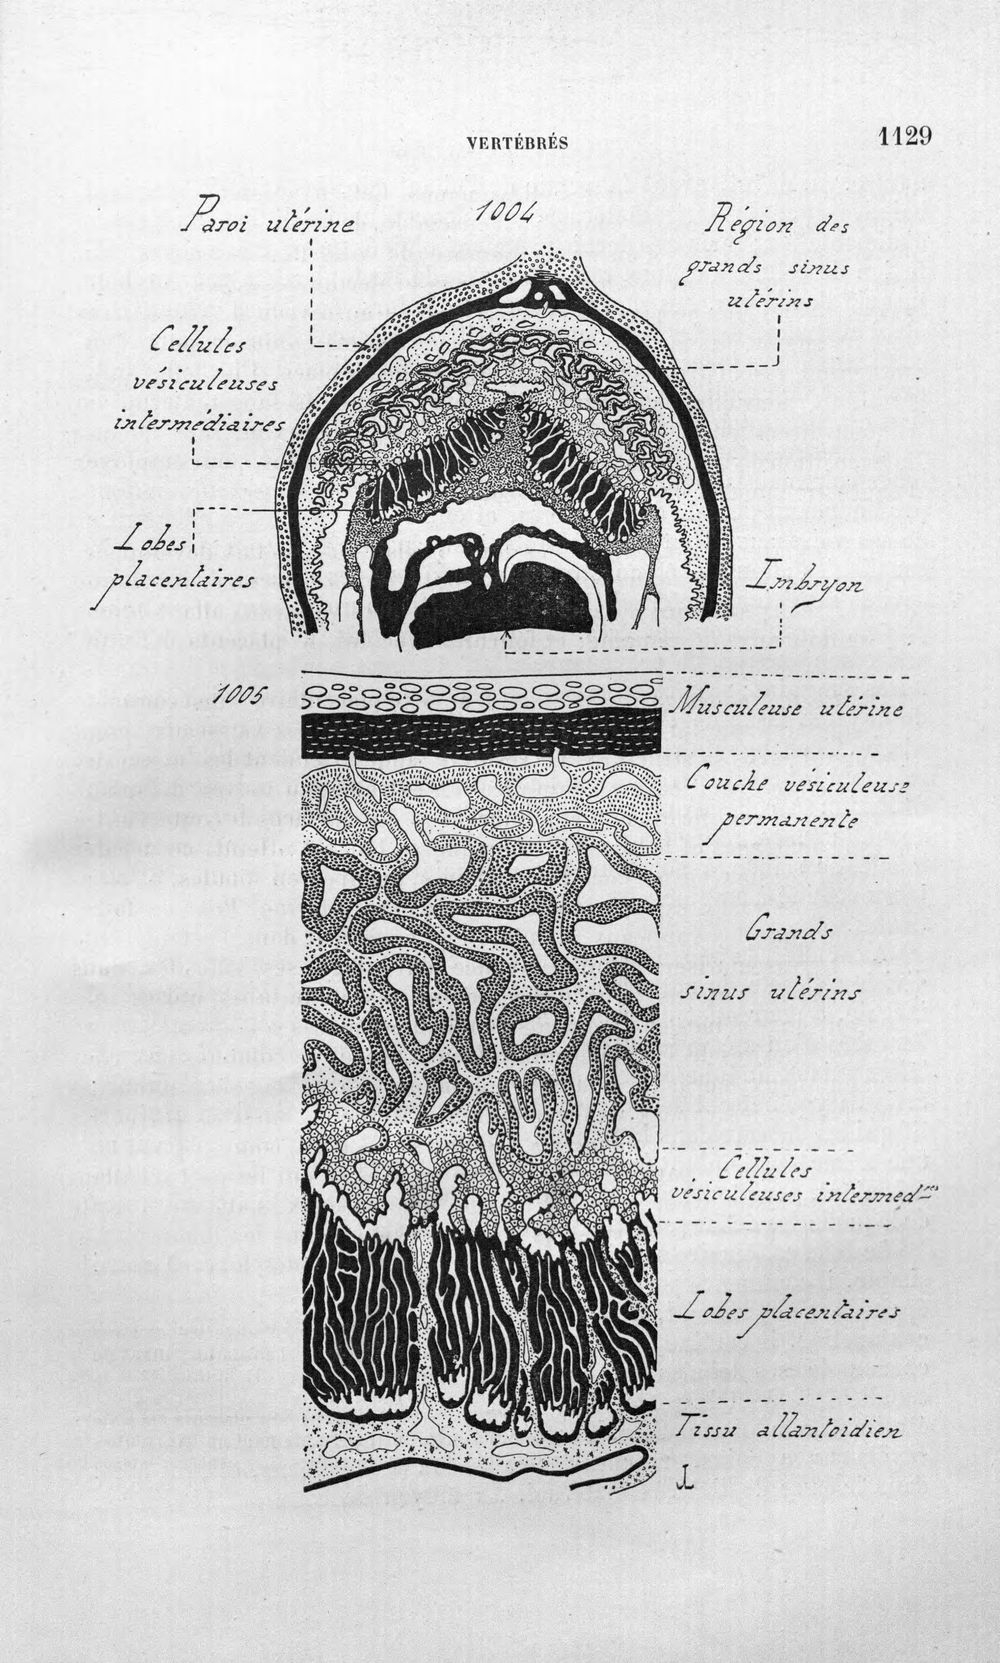 VERTÉBRÉS
1129
1004
Paroi utérine
Région des
grands sinus
utérins
Cellules
vésiculeuses
intermédiaires
Lobes
placentaires
Embryon
1005
Musculeuse utérine
Couche vésiculeuse
permanente
Grands
sinus utérins
Cellules
vésiculeuses intermed^res
Lobes placentaires
Tissu allantoïdien